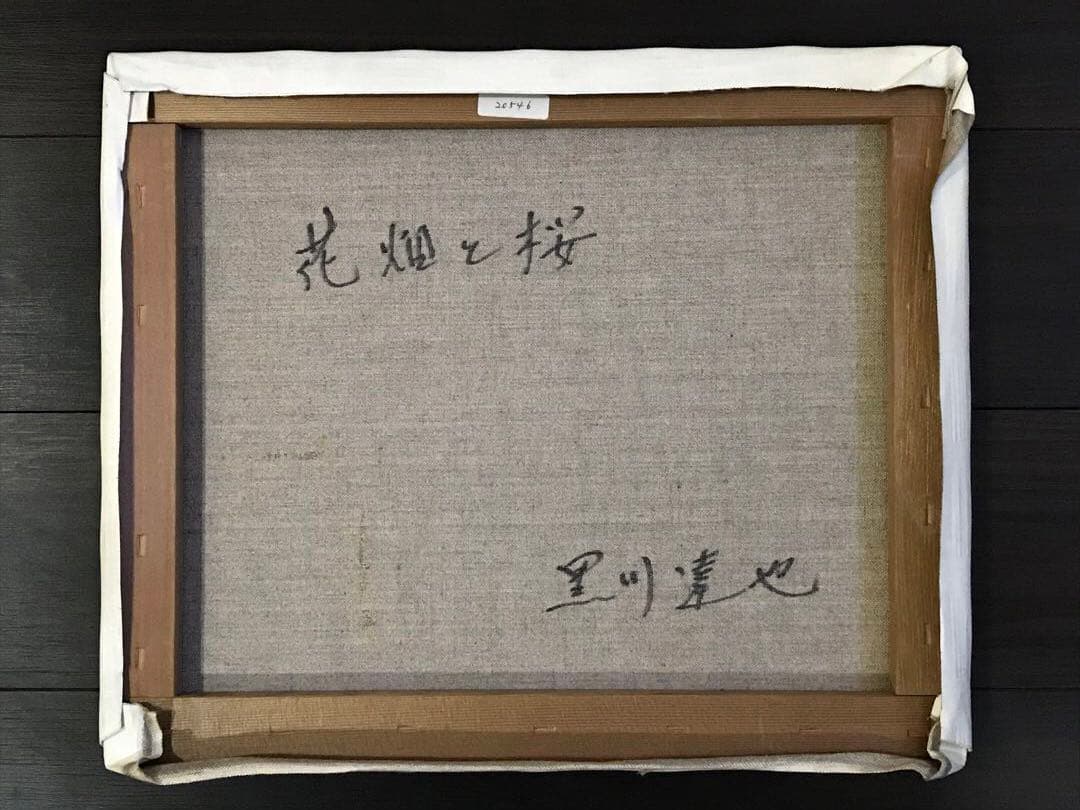 20546
花畑と桜
黒川達也